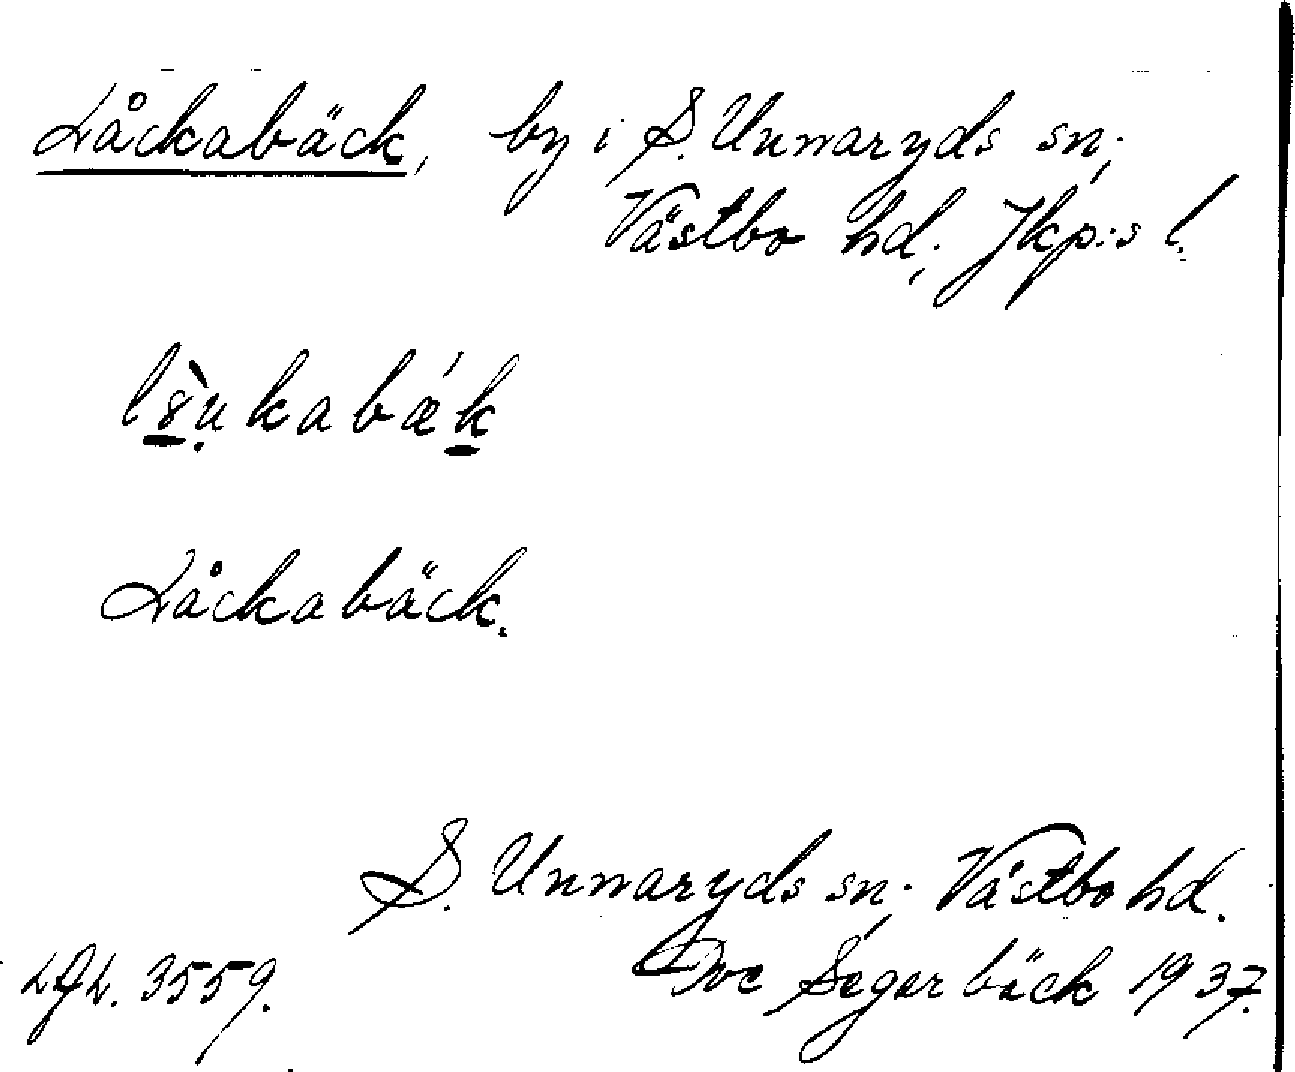 Låckabäck, by i S. Unnaryds sn;
Västbo hd, Jkp:s l.
Låckabäck.
S. Unnaryds sn; Västbo hd.
Segerbäck 1937.
3559.